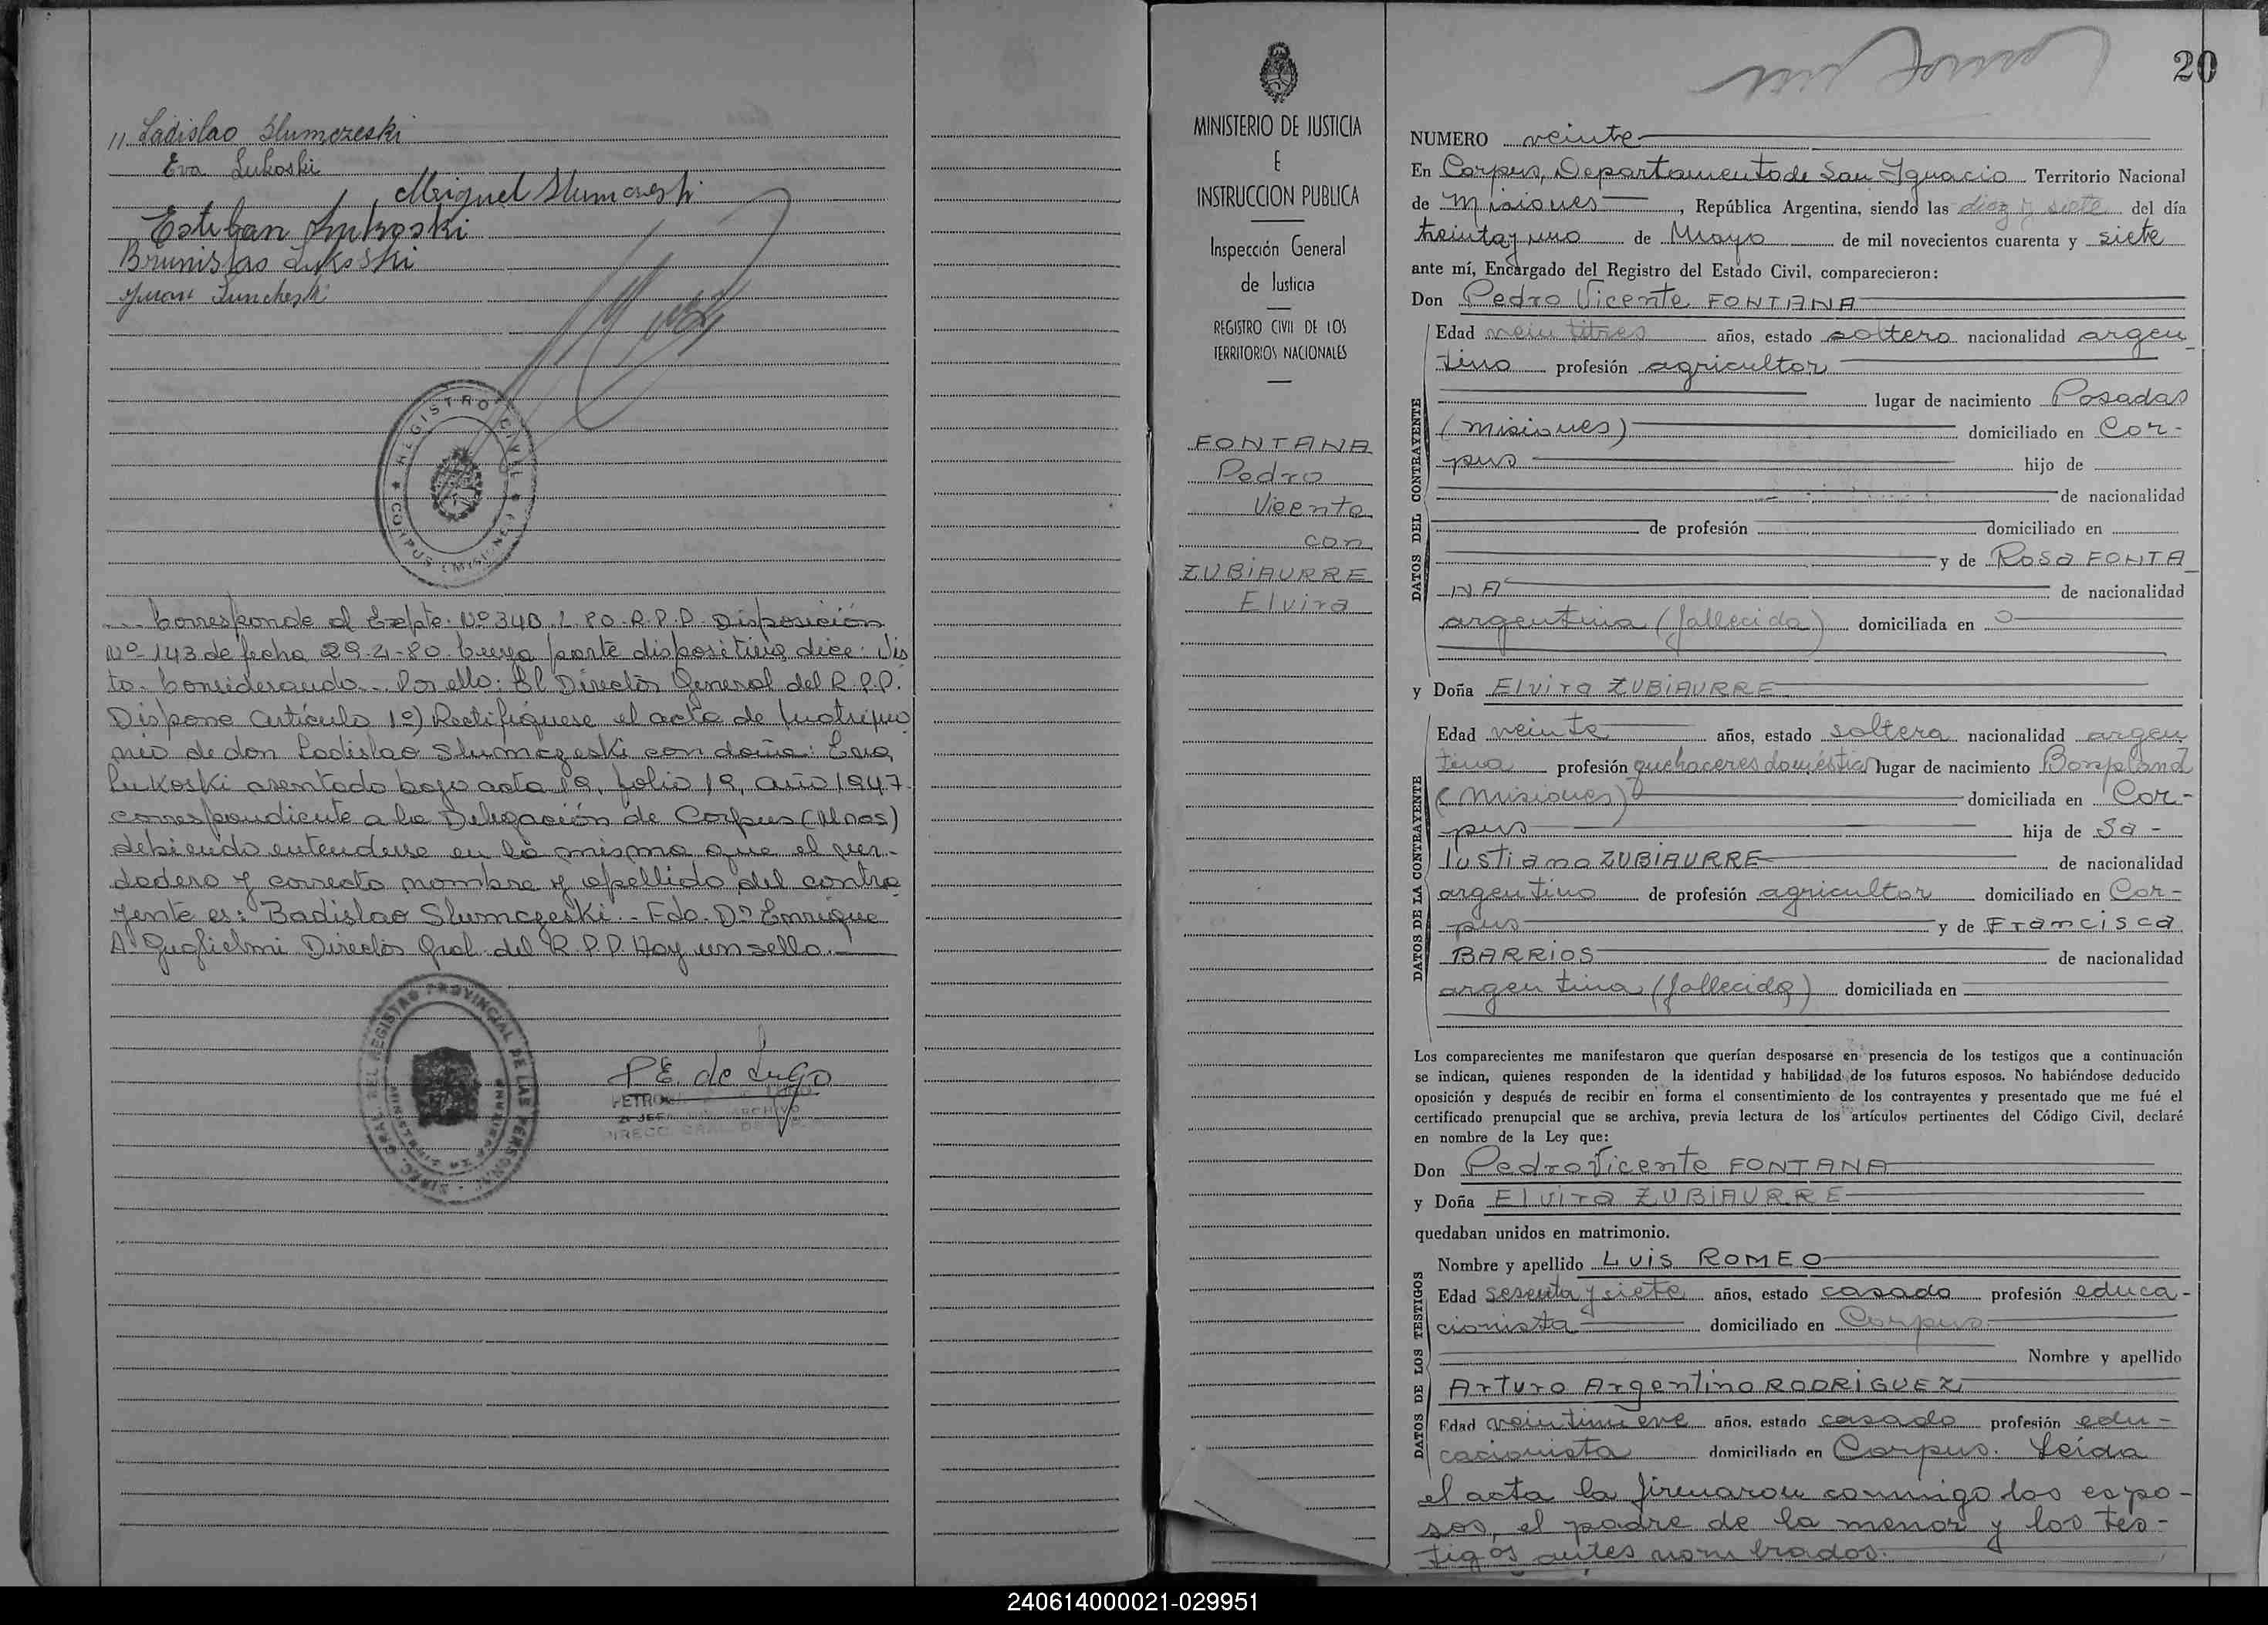 " Ladislao Slumczeski
Eva Lukoski
Miguel Slumczeski
Esteban Lukoski
Brunislao Lukoski
Juan
REGISTRO CIVIL
CORPUS (MISIONES)
... Corresponde al Expte. Nº 340. L. 80. R.P.P. Disposición
Nº 143 de fecha 29-4-80. Cuya parte dispositiva dice: Vis
to. Considerando... Por ello: El Director General del R.P.P.
Dispone Artículo 1º) Rectifíquese el acta de matrimo
nio de don Ladislao Slumczeski con doña: Eva
Lukoski asentado bajo acta 19, folio 19, año 1947
correspondiente a la Delegación de Corpus (Mnes)
debiendo entenderse en la misma que el ver-
dadero y correcto nombre y apellido del contra
yente es: Badislao Slumczeski.- Fdo. Dº Enrique
A. Guglielmi Director Gral. del R.P.P. Hay un sello.
P E. de Lugo
20
MINISTERIO DE JUSTICIA
E
INSTRUCCION PUBLICA
Inspección General
de Justicia
REGISTRO CIVIL DE LOS
TERRITORIOS NACIONALES
FONTANA
Pedro
Vicente
con
ZUBIAURRE
Elvira
NUMERO veinte
En Corpus, Departamento de San Ignacio Territorio Nacional
de Misiones, República Argentina, siendo las diez y siete del día
treinta y uno de Mayo de mil novecientos cuarenta y siete
ante mí, Encargado del Registro del Estado Civil, comparecieron:
Don Pedro Vicente FONTANA
DATOS DEL CONTRAYENTE
Edad veintitres años, estado soltero nacionalidad argen
tino profesión agricultor
lugar de nacimiento Posadas
(Misiones) domiciliado en Cor-
pus hijo de
de nacionalidad
de profesión domiciliado en
y de Rosa FONTA
NA de nacionalidad
argentina (fallecida) domiciliada en
y Doña Elvira ZUBIAURRE
DATOS DE LA CONTRAYENTE
Edad veinte años, estado soltera nacionalidad argen
tina profesión quehaceres domésticos lugar de nacimiento Bonpland
(Misiones) domiciliada en Cor-
pus hija de Sa-
lustiano ZUBIAURRE de nacionalidad
argentino de profesión agricultor domiciliado en Cor-
pus y de Francisca
BARRIOS de nacionalidad
argentina (fallecida) domiciliada en
Los comparecientes me manifestaron que querían desposarse en presencia de los testigos que a continuación
se indican, quienes responden de la identidad y habilidad de los futuros esposos. No habiéndose deducido
oposición y después de recibir en forma el consentimiento de los contrayentes y presentado que me fué el
certificado prenupcial que se archiva, previa lectura de los artículos pertinentes del Código Civil, declaré
en nombre de la Ley que:
Don Pedro Vicente FONTANA
y Doña Elvira ZUBIAURRE
quedaban unidos en matrimonio.
DATOS DE LOS TESTIGOS
Nombre y apellido LUIS ROMEO
Edad sesenta y siete años, estado casado profesión educa-
cionista domiciliado en Corpus.
Nombre y apellido
Arturo Argentino RODRIGUEZ
Edad veintinueve años, estado casado profesión edu-
cacionista domiciliado en Corpus. Leída
el acta la firmaron conmigo los espo-
sos, el padre de la menor y los tes-
tigos antes nombrados.
240614000021-029951